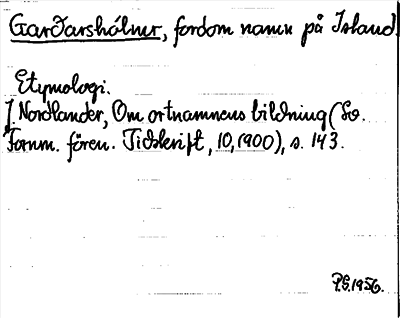 Garðarshólmr, fordom namn på Island
Etymologi.
J. Nordlander, Om ortnamnens bildning (Sv.
Fornm. fören. Tidskrift, 10, 1900), s. 143.
P.G. 1956.